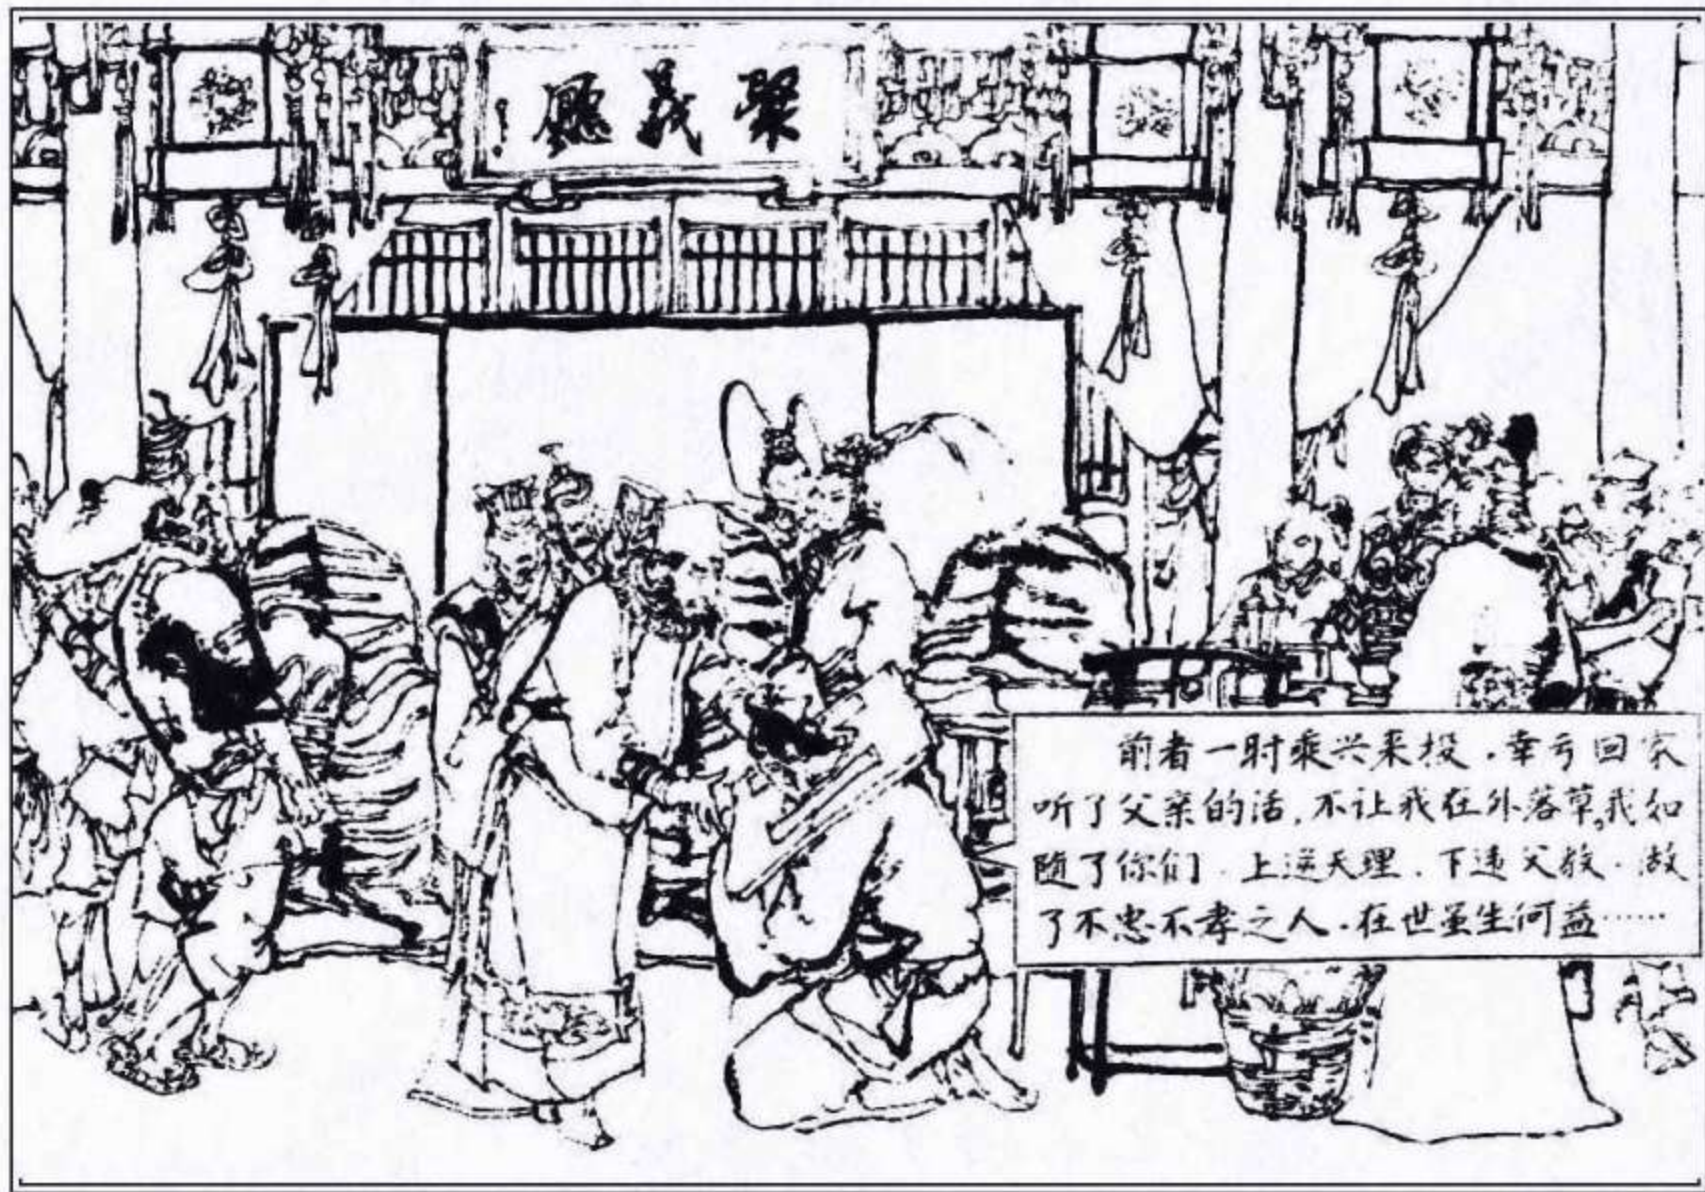 聚義廳
前者一时乘兴来投.幸亏回家
听了父亲的话,不让我在外落草,我如
随了你们.上逆天理.下违父教.做
了不忠不孝之人.在世虽生何益……